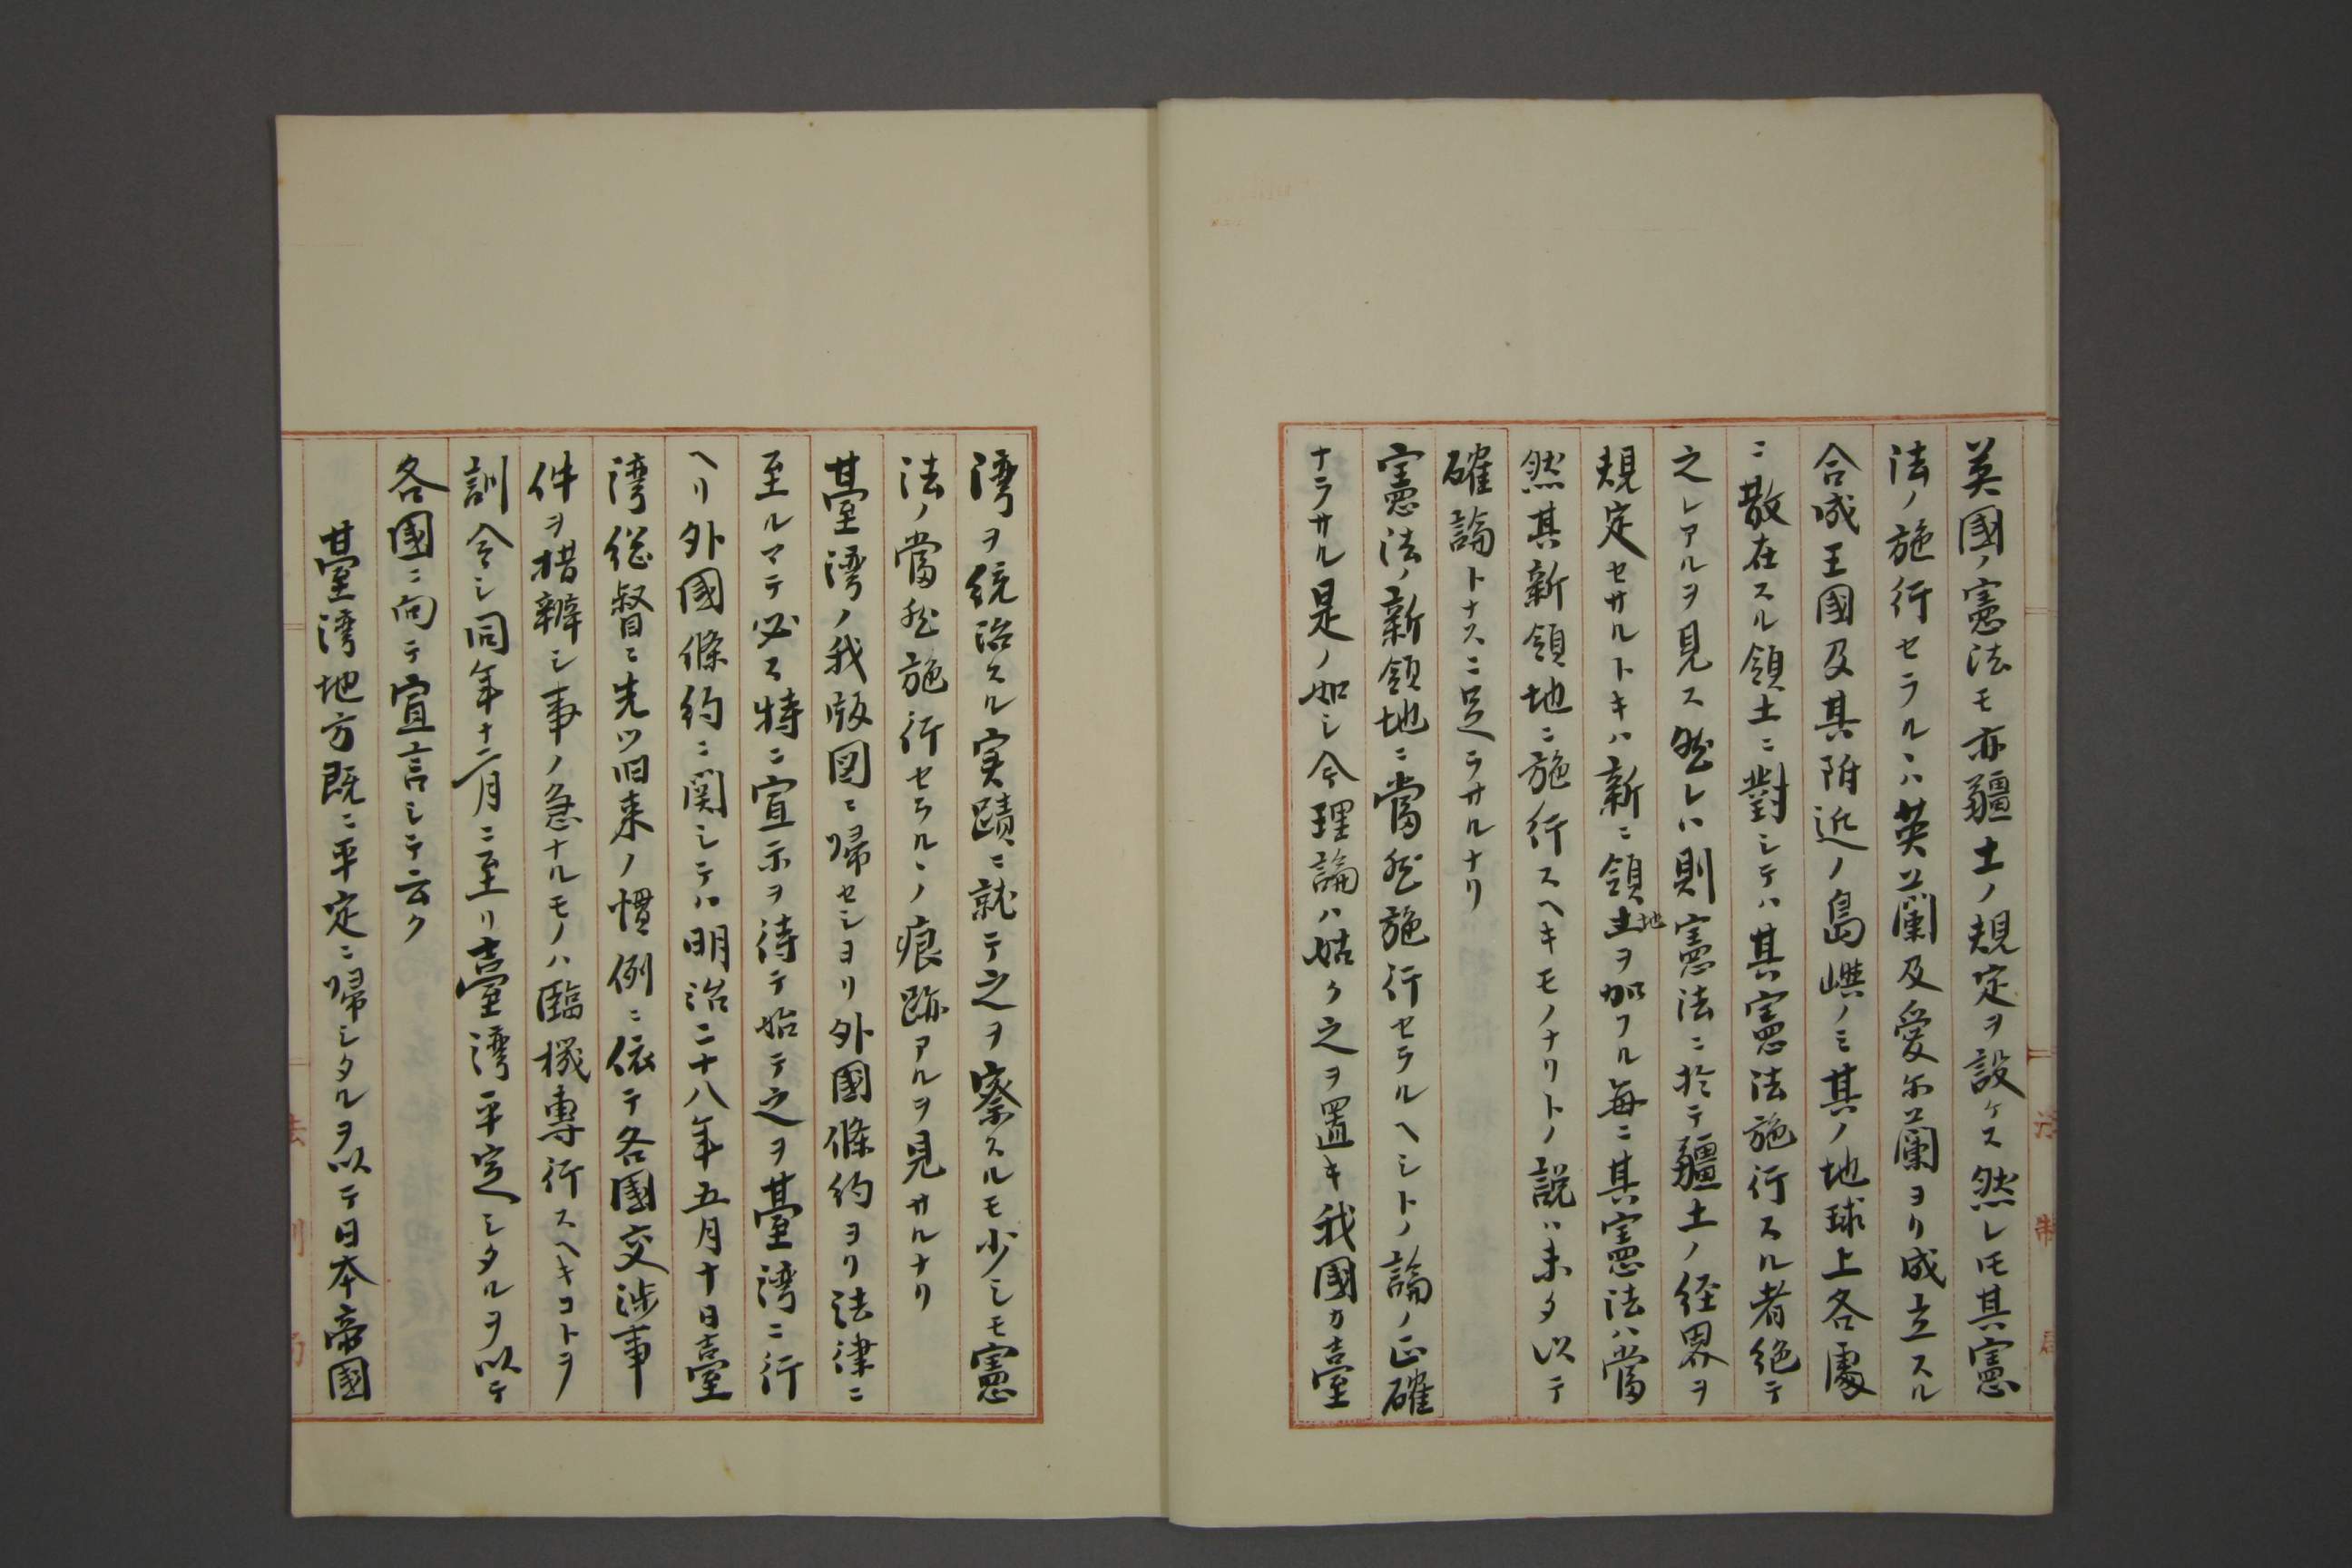 英國ノ憲法モ亦疆土ノ規定ヲ設ケス然レ𪜈其憲
法ノ施行セラルヽハ英蘭及愛尓蘭ヨリ成立スル
合成王國及其附近ノ島嶼ノミ其ノ地球上各處
ニ散在スル領土ニ對シテハ其憲法施行スル者絶テ
之レアルヲ見ス然レハ則憲法ニ於テ疆土ノ経界ヲ
規定セサルトキハ新ニ領地ヲ加フル毎ニ其憲法ハ當
然其新領地ニ施行スヘキモノナリトノ説ハ未タ以テ
確論トナスニ足ラサルナリ
憲法ノ新領地ニ當然施行セラルヘシトノ論ノ正確
ナラサル是ノ如シ今理論ハ姑ク之ヲ置キ我國カ臺
湾ヲ統治スル実蹟ニ就テ之ヲ察スルモ少シモ憲
法ノ當然施行セラルヽノ痕跡アルヲ見サルナリ
臺湾ノ我版図ニ帰セシヨリ外國條約ヨリ法律ニ
至ルマテ必ス特ニ宣示ヲ待テ始テ之ヲ臺湾ニ行
ヘリ外國條約ニ関シテハ明治二十八年五月十日臺
湾総督ニ先ツ旧来ノ慣例ニ依テ各國交渉事
件ヲ措辦シ事ノ急ナルモノハ臨機専行スヘキコトヲ
訓令シ同年十二月ニ至リ臺湾平定シタルヲ以テ
各國ニ向テ宣言シテ云ク
臺湾地方既ニ平定ニ帰シタルヲ以テ日本帝國
法制局